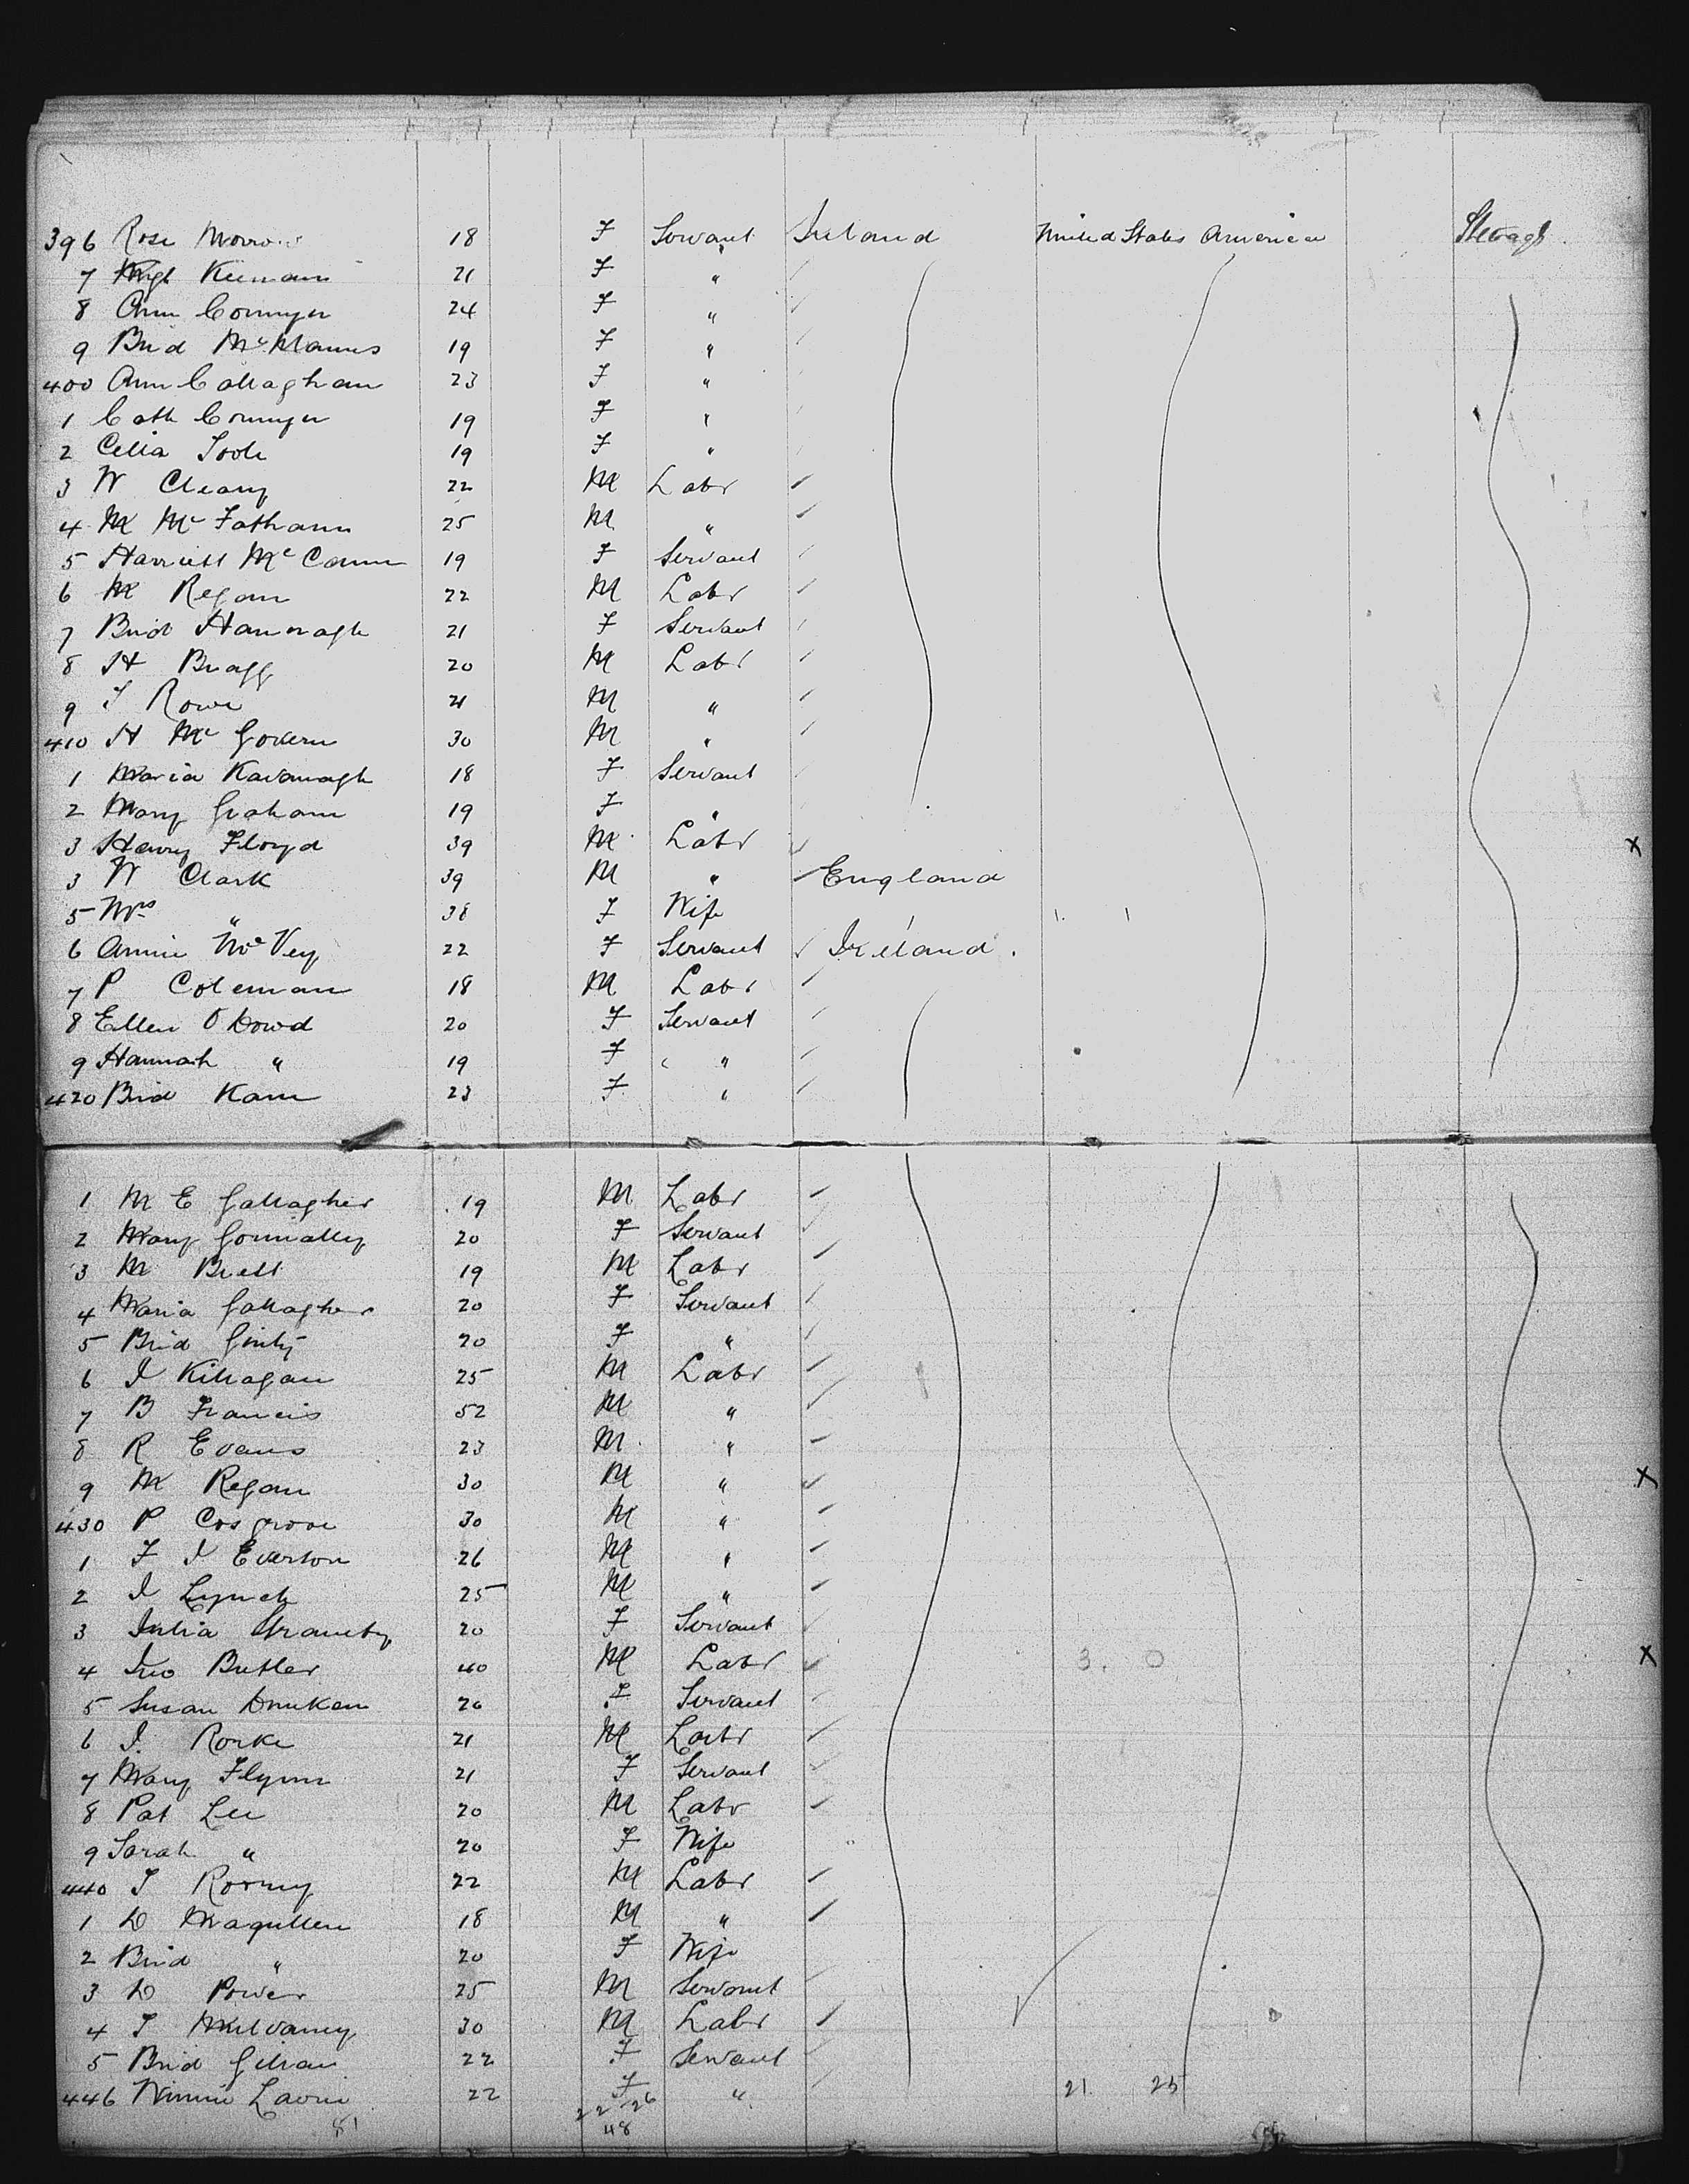 396 Rose 18 F Servant Ireland United States America Steragh
7 21 F "
8 Ann 24 F "
9 Brid McManus 19 F "
400 Ann Callaghan 23 F "
1 Cath 19 F "
2 Celia Toole 19 F "
3 W Cleary 22 M Labr
4 M 25 M "
5 Harriett McCann 19 F Servant
6 M Regan 22 M Labr
7 Brid 21 F Servant
8 H Bragg 20 M Labr
9 T Rowe 21 M "
410 H McGovern 30 M "
1 Maria Kavanagh 18 F Servant
2 Mary Graham 19 F "
3 Henry Floyd 39 M Labr X
3 W Clark 39 M " England
5 Mrs " 38 F Wife 1. 1
6 Annie McVey 22 F Servant Ireland.
7 P Coleman 18 M Labr
8 Ellen O Dowd 20 F Servant
9 Hannah " 19 F "
420 Brid Kane 23 F "
1 M E Gallagher 19 M Labr
2 Mary 20 F Servant
3 M Brett 19 M Labr
4 Maria Gallagher 20 F Servant
5 Brid Ginty 20 F "
6 J 25 M Labr
7 B Francis 52 M "
8 R Evans 23 M "
9 M Regan 30 M " X
430 P Cosgrove 30 M "
1 F J Everton 26 M "
2 J Lynch 25 M "
3 Julia 20 F Servant
4 Jno Butler 40 M Labr 3. 0 X
5 Susan 20 F Servant
6 J. Rorke 21 M Labr
7 Mary Flynn 21 F Servant
8 Pat Lee 20 M Labr
9 Sarah " 20 F Wife
440 T 22 M Labr
1 D 18 M "
2 Brid " 20 F Wife
3 D Power 25 M Servant
4 T Mulvaney 30 M Labr
5 Brid 22 F Servant
446 Winnie 22 F " 21. 25
81 22 26
48